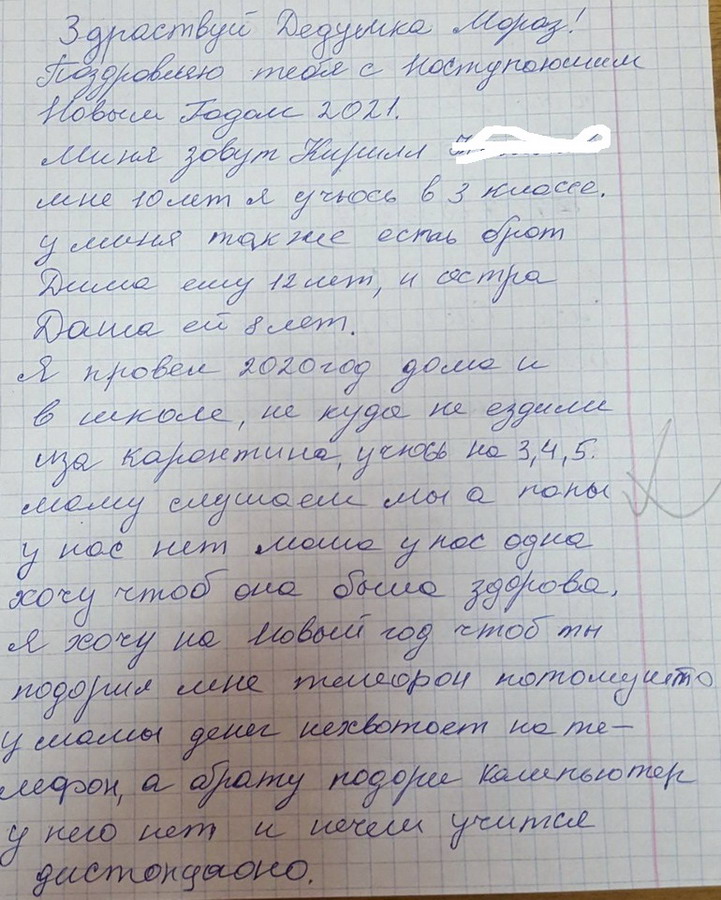 Здраствуй Дедушка Мороз!
Поздровляю тебя с Ноступаюшим
Новым Годом 2021.
Миня зовут Кирилл
мне 10 лет я учюсь в 3 классе.
у миня также есть брот
Дима ему 12 лет, и остра
Даша ей 8 лет.
Я провел 2020 год дома и
в школе, не куда не ездили
иза каронтина, учюсь на 3,4,5.
маму слушаем мы а папы
у нас нет мама у нас одна
хочу чтоб она была здорова.
Я хочу на Новый год чтоб ты
подорил мне телефон потомушто
у мамы денег нехвотоет на те-
лефон, а брату подори компьютер
у него нет и нечем учится
дистонцаоно.